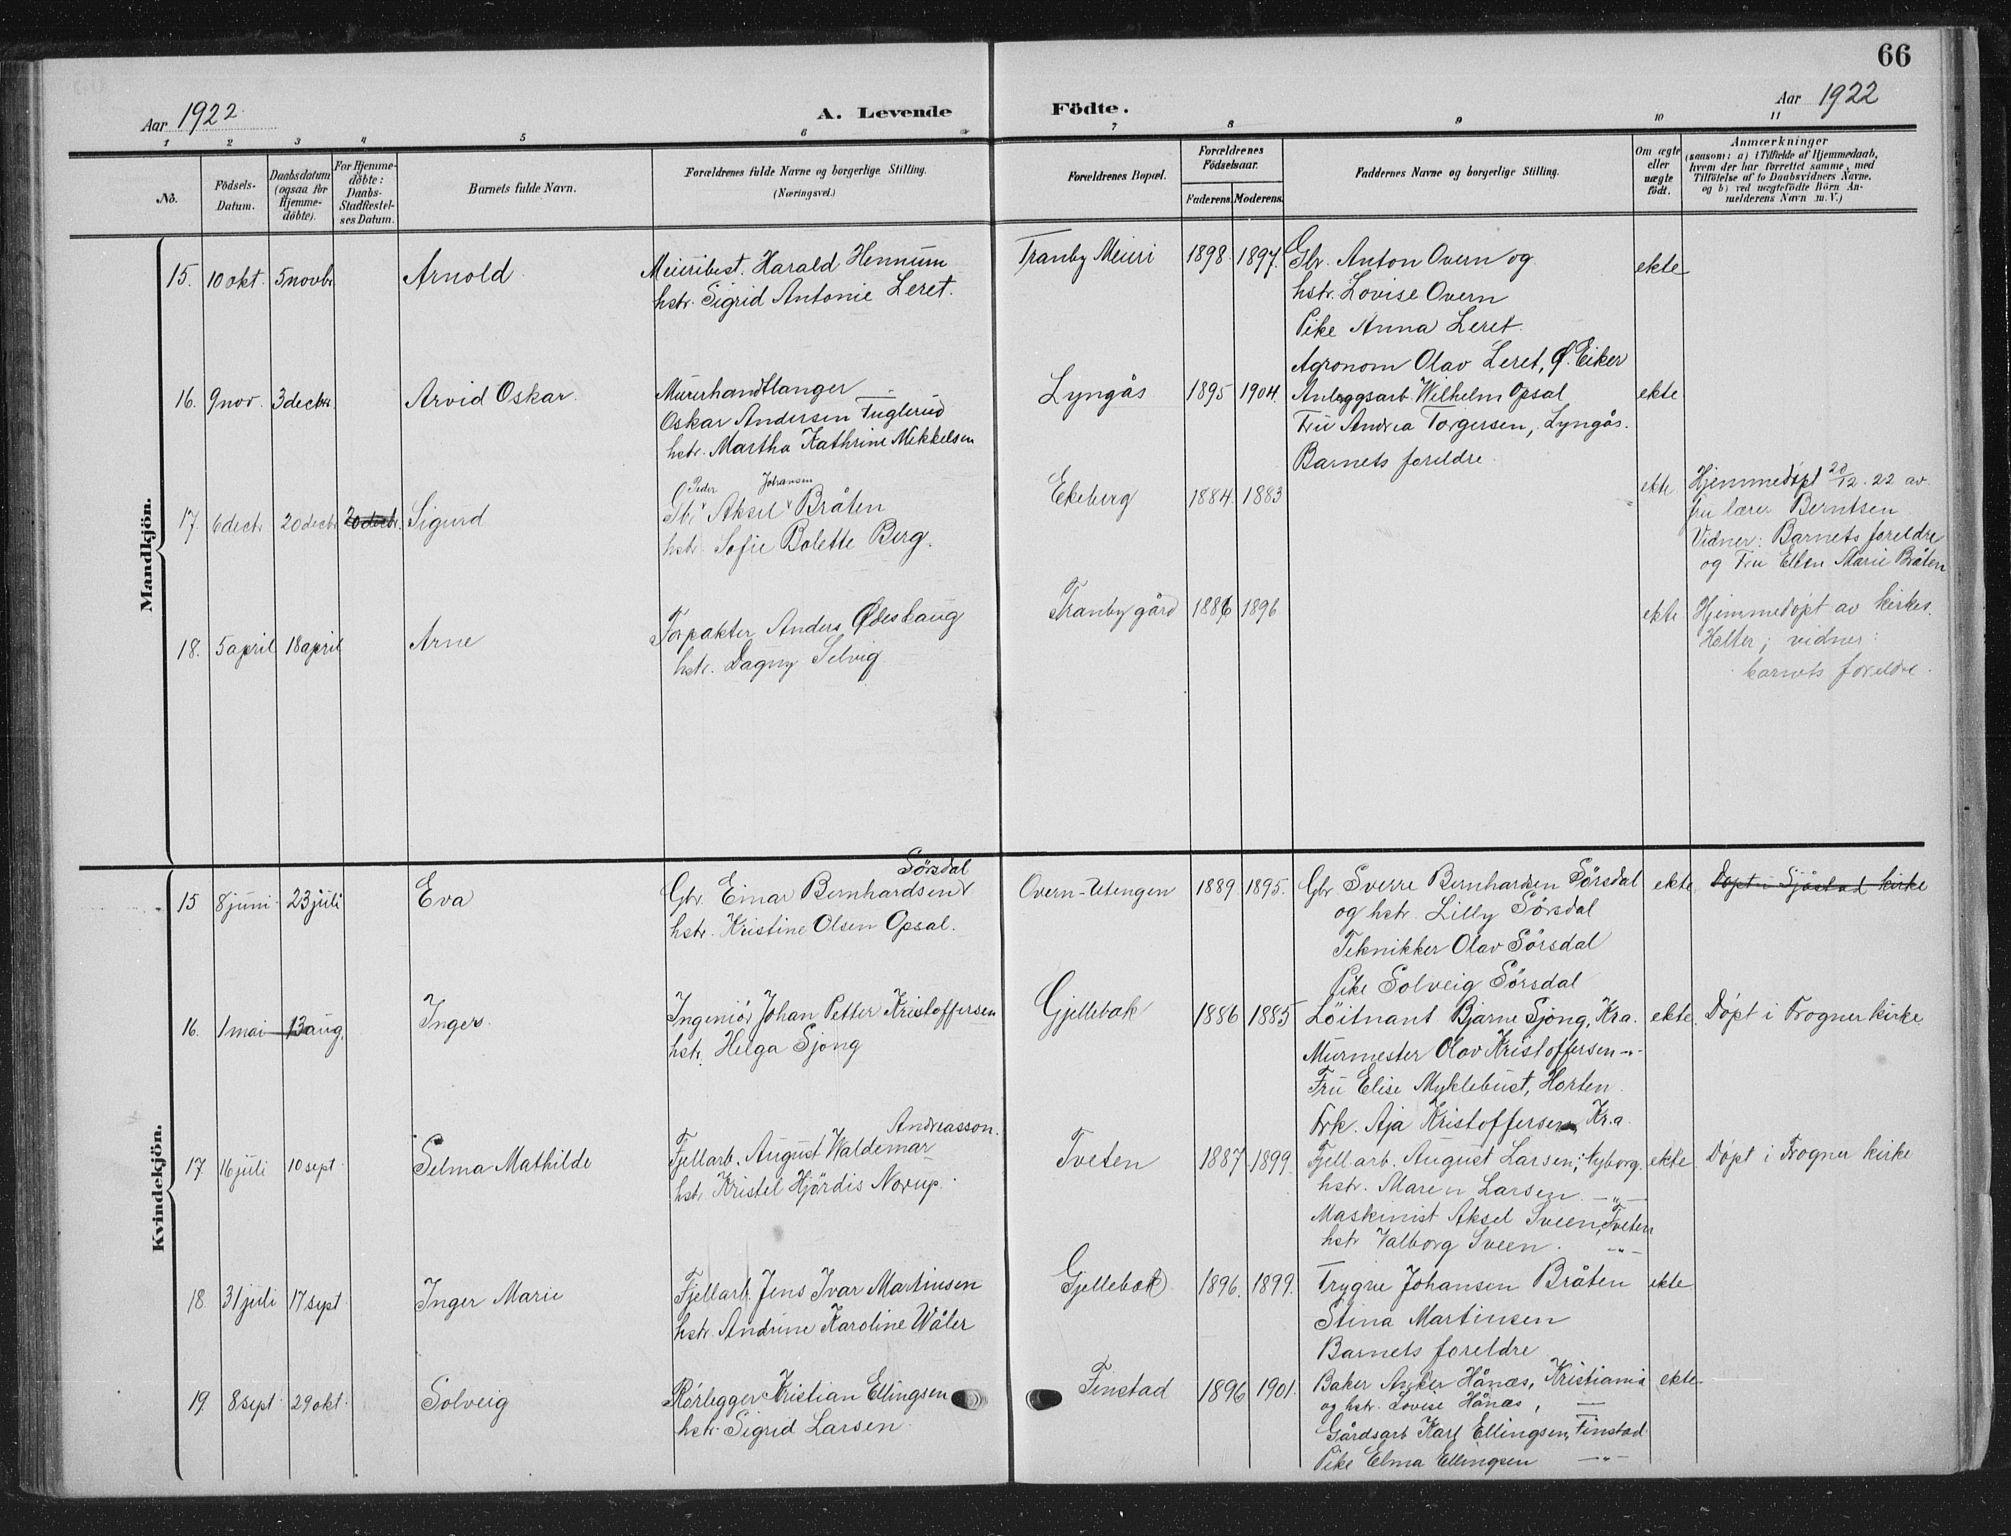 66
Aar 1922
A. Levende Födte.
Aar 1922
1 2 3 4 5 6 7 8 9 10 11
No.
Födsels-Datum.
Daabsdatum (ogsaa for Hjemme-döbte).
For Hjemme-döbte: Daabs-Stadfæstel-ses Datum.
Barnets fulde Navn.
Forældrenes fulde Navne og borgerlige Stilling.
(Næringsvei.)
Forældrenes Bopæl.
Forældrenes Födselsaar.
Faderens. Moderens.
Faddernes Navne og borgerlige Stilling.
Om ægte eller uægte födt.
Anmærkninger
(saasom: a) i Tilfælde af Hjemmedaab,
hvem der har forrettet samme, med
Tilföielse af to Daabsvidners Navne,
og b) ved uægtefödte Börn An-
melderens Navn m. V.)
Mandkjön.
15. 10 okt. 5 novbr Arnold Meieribest. Harald Hennum Tranby Meieri 1898 1897. Gbr. Anton Overn og ekte
hstr. Sigrid Antonie Leret. hstr. Lovise Overn
Pike Anna Leret.
Agronom Olav Leret, Ø. Eiker
16. 9 nov. 3 decbr. Arvid Oskar. Murerhandtlanger Lyngås 1895 1904. Anleggsarb. Wilhelm Opsal ekte
Oskar Andersen Fuglerud Fru Andrea Torgersen, Lyngås.
hstr. Martha Kathrine Mikkelsen Barnets foreldre
Peder Johansen
17. 6 decbr 20 decbr 20 decbr. Sigurd Aksel Bråten Ekeberg 1884 1883 ekte Hjemmedøpt 20/12. 22 av
hstr. Sofie Bolette Berg. fru lærer Berntsen
Vidner: Barnets foreldre
og Fru Ellen Marie Bråten
18. 5 april 18 april Arne Forpakter Anders Ødeshaug Tranby gård 1886 1896 ekte Hjemmedøpt av kirkes.
hstr. Dagny Selvig Halter; vidner:
barnets foreldre.
Kvindekjön.
Sörsdal
15 8 juni 23 juli Eva Gbr. Einar Bernhardsen Overn-Utengen 1889 1895. Gbr Sverre Bernhardsen Sörsdal ekte Døpt i Sjåstad kirke
hstr. Kristine Olsen Opsal. og hstr. Lilly Sörsdal
Teknikker Olav Sörsdal
Pike Solveig Sörsdal
16. 1 mai 13 aug. Inger. Ingeniör Johan Petter Kristoffersen Gjellebæk 1886 1885 Löitnant Bjarne Sjong, Kra. ekte. Døpt i Frogner kirke
hstr. Helga Sjong Murmester Olav Kristoffersen -"-
Fru Elise Myklebust, Horten.
Frk. Aja Kristoffersen, Kra.
Andreasson.
17 16 juli 10 sept. Selma Mathilde Fjellarb. August Waldemar Tveten 1887 1899. Fjellarb. August Larsen, Nyborg. ekte Døpt i Frogner kirke
hstr. Kristel Hjördis Norup. hstr. Maren Larsen. -"-
Maskinist Aksel Sveen, Tveten
hstr Valborg Sveen. -"-
18. 31 juli 17 sept Inger Marie Fjellarb. Jens Ivar Martinsen Gjellebæk 1896. 1899. Trygve Johansen Bråten ekte
hstr. Andrine Karoline Wåler Stina Martinsen
Barnets foreldre
19. 8 sept. 29 okt. Solveig Rörlegger Kristian Ellingsen Finstad 1896 1901. Baker Anker Hånæs, Kristiania ekte
hstr. Sigrid Larsen. og hstr. Lovise Hånæs, —
Gårdsarb Karl Ellingsen, Finstad
Pike Elma Ellingsen -"-